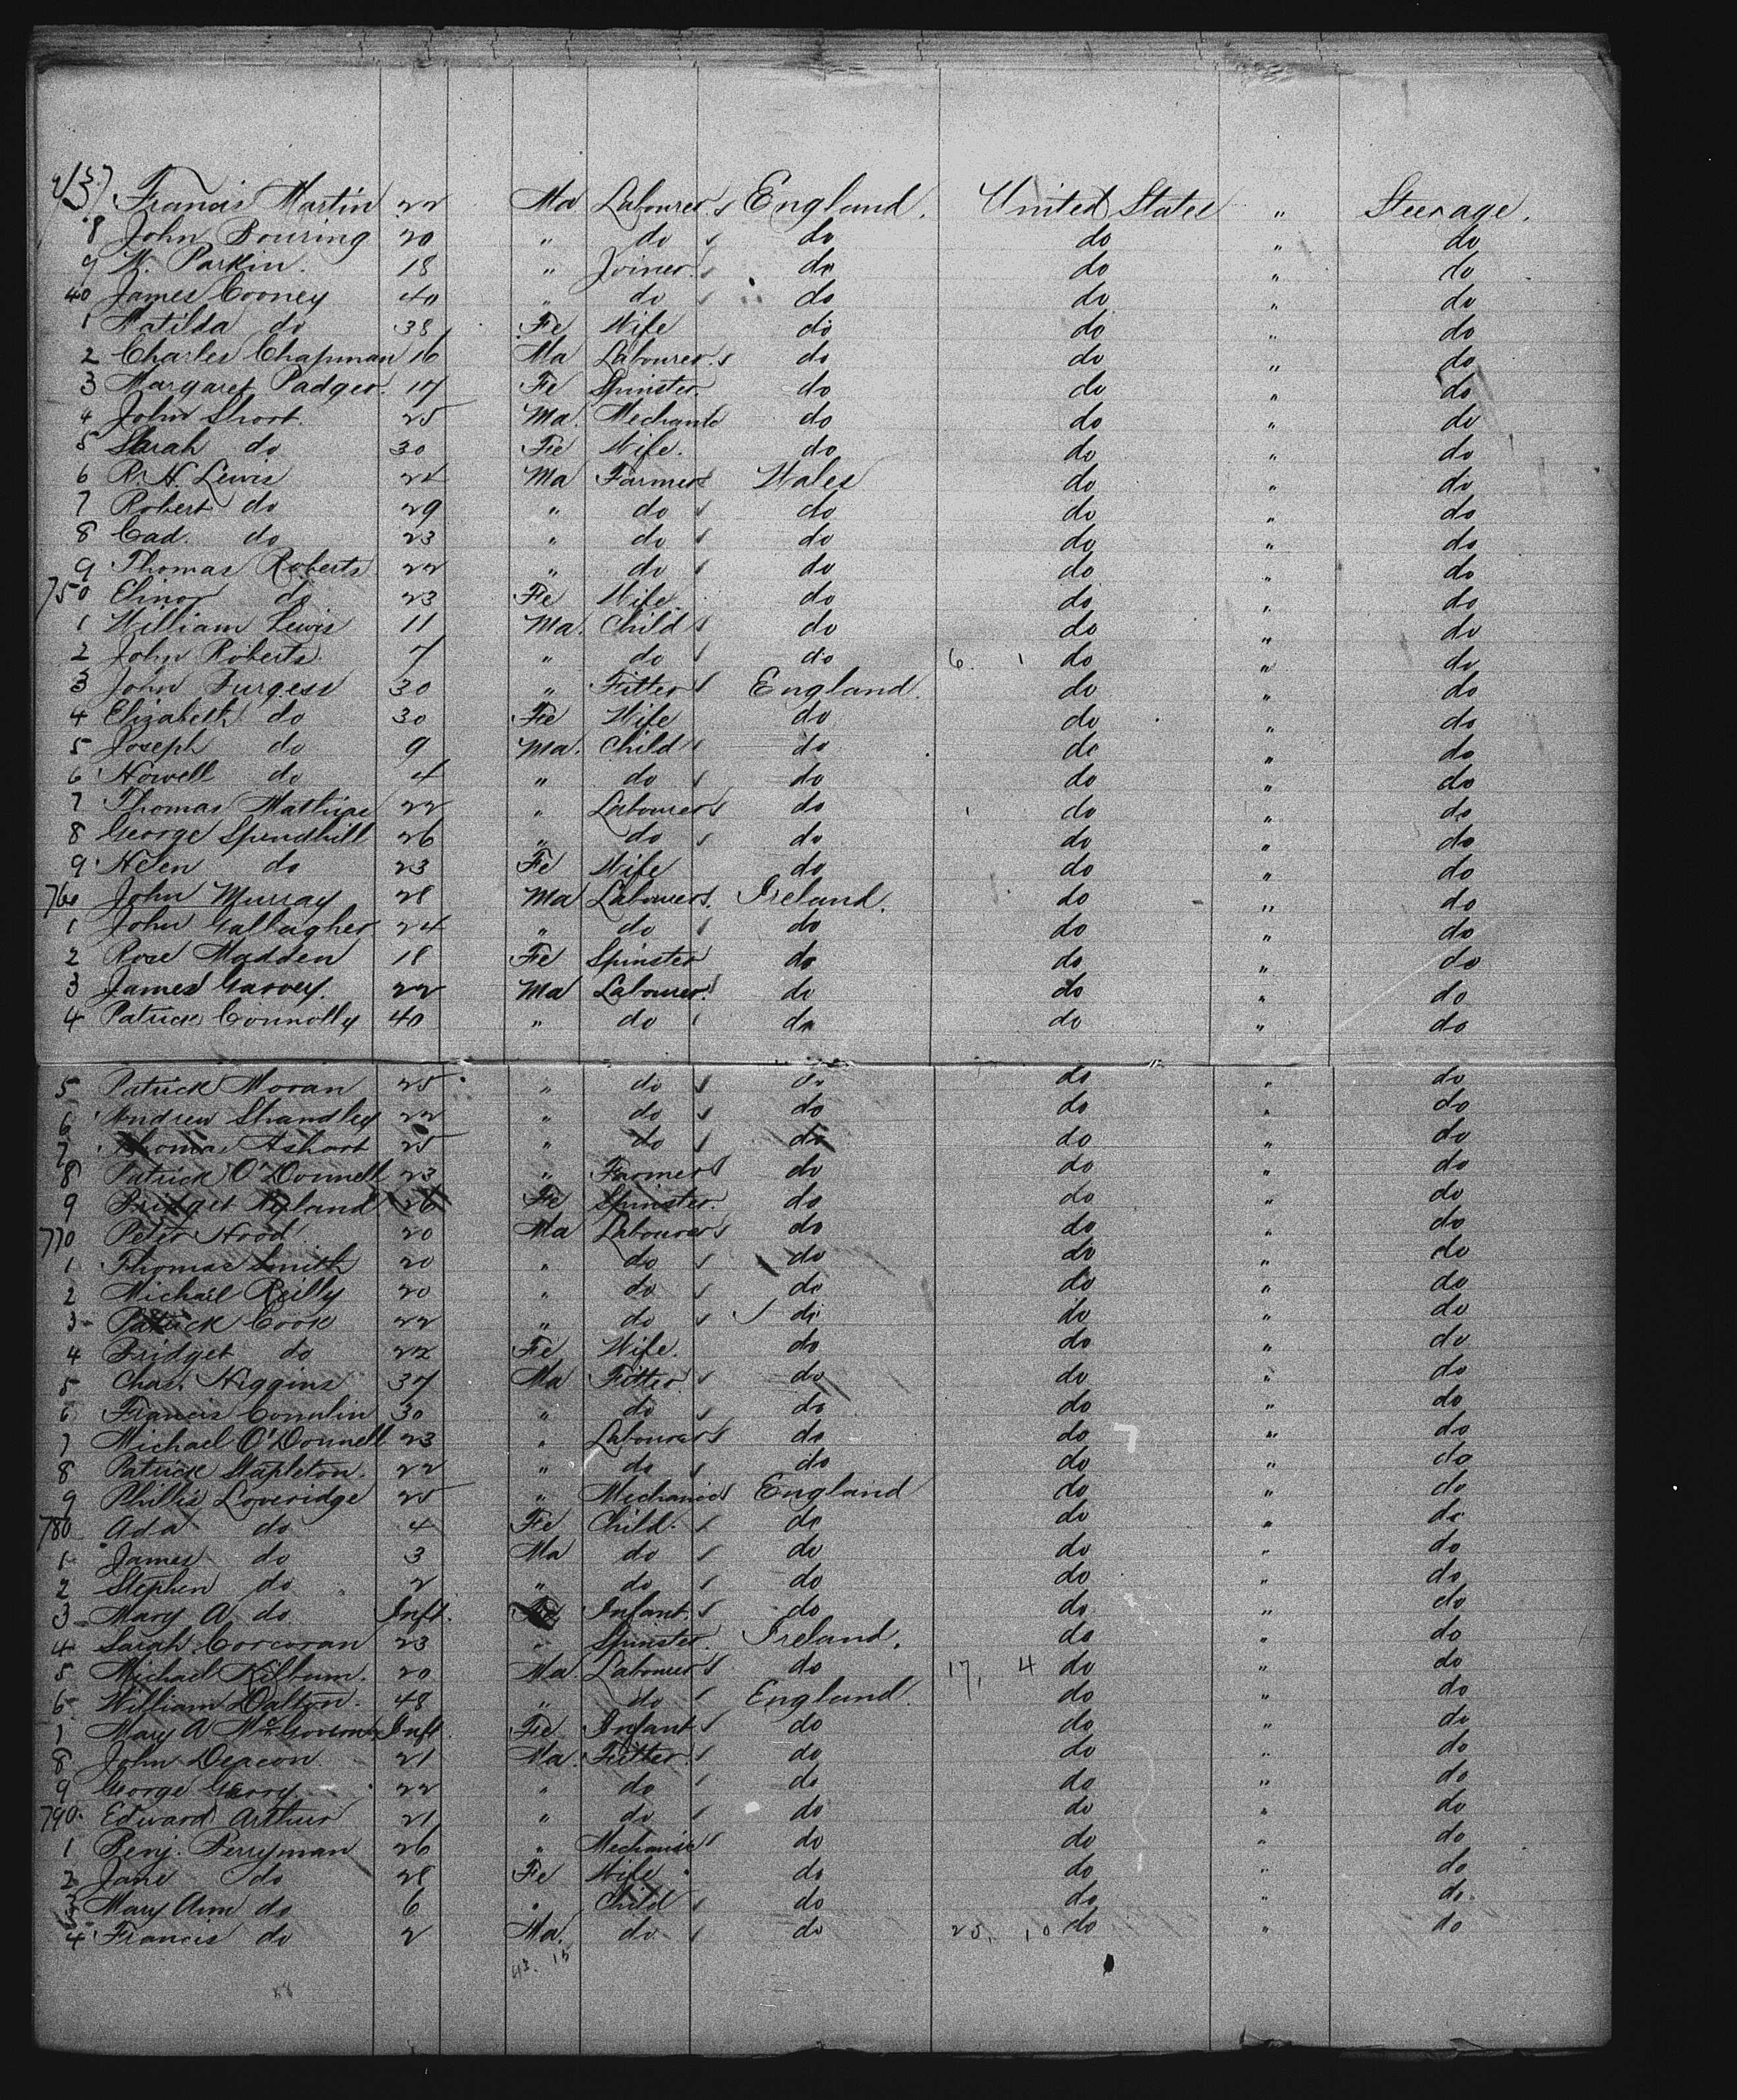 737 Francis Martin 22 Ma Labourer England. United States " Steerage.
8 John Bouring 20 " do do do " do
9 W. Parkin. 18 " Joiner do do " do
40 James Cooney 40 " do do do " do
1 Matilda do 38 Fe Wife do do " do
2 Charles Chapman 16 Ma Labourer do do " do
3 Margaret Padger. 17 Fe Spinster. do do " do
4 John Short. 25 Ma. Mechanic do do " do
5 Sarah do 30 Fe Wife. do do " do
6 R. H. Lewis 24 Ma Farmer Wales do " do
7 Robert do 29 " do do do " do
8 Cad. do 23 " do do do " do
9 Thomas Roberts 22 " do do do " do
750 Elinor do 23 Fe Wife do do " do
1 William Lewis 11 Ma. Child do do " do
2 John Roberts. 7 " do do 6. 1 do " do
3 John Furgess 30 " Fitter England. do " do
4 Elizabeth do 30 Fe Wife do do " do
5 Joseph do 9 Ma. Child do do " do
6 Howell do 4 " do do do " do
7 Thomas Mathias 22 " Labourer do do " do
8 George Spendhill 26 " do do do " do
9 Helen do 23 Fe Wife do do " do
760 John Murray 28 Ma Labourer Ireland. do " do
1 John Gallagher 24 " do do do " do
2 Rose Madden 18 Fe Spinster do do " do
3 James Garvey. 22 Ma Labourer do do " do
4 Patrick Connolly 40 " do do do " do
5 Patrick Moran 25 " do do do " do
6 Andrew Shandley 22 " do do do " do
7 Thomas Ashort 25 " do do do " do
8 Patrick O'Donnell 23 " Farmer do do " do
9 Bridget Hyland 26 Fe Spinster. do do " do
770 Peter Hood 20 Ma Labourer do do " do
1 Thomas Smith 20 " do do do " do
2 Michael Reilly 20 " do do do " do
3 Patrick Cook 22 " do do do " do
4 Bridget do 22 Fe Wife. do do " do
5 Chas. Higgins 37 Ma Fitter do do " do
6 Francis 30 " do do do " do
7 Michael O'Donnell 23 " Labourer do do " do
8 Patrick Stapleton. 22 " do do do " do
9 Phillis Loveridge 25 " Mechanic England do " do
780 Ada do 4 Fe Child do do " do
1 James do 3 Ma do do do " do
2 Stephen do 2 " do do do " do
3 Mary A. do Inft. Fe Infant. do do " do
4 Sarah Corcoran 23 " Spinster. Ireland. do " do
5 Michael Kilbum. 20 Ma. Labourer do 17, 4 do " do
6 William Dalton. 48 " do England. do " do
7 Mary A McGovern Inft. Fe Infant do do " do
8 John Deacon. 21 Ma. Fitter do do " do
9 George Gerry 22 " do do do " do
790. Edward Arthur 21 " do do do " do
1 Benj. Perryman 26 " Mechanic do do " do
2 Jane do 28 Fe Wife do do " do
3 Mary Ann do 6 " Child do do " do
4 Francis do 2 Ma. do do 25, 10 do " do
43. 15
58